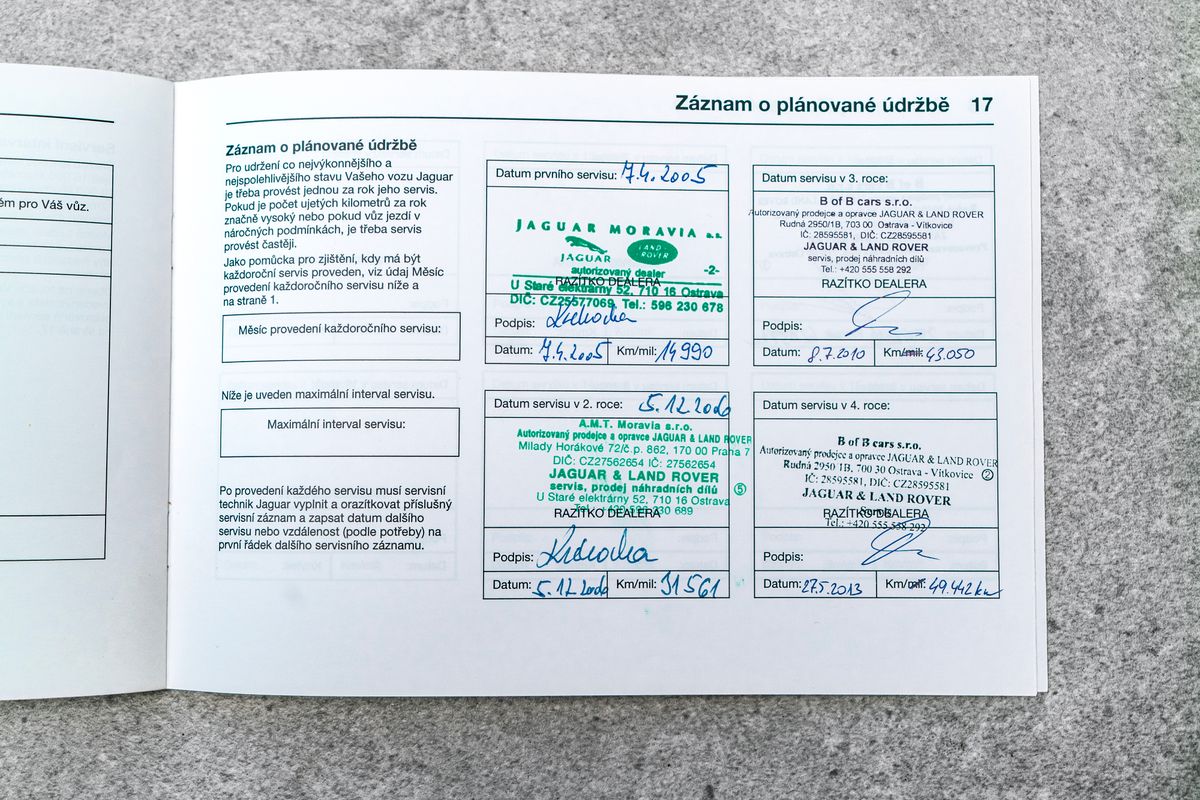 Záznam o plánované údržbě 17
ém pro Váš vůz.
Záznam o plánované údržbě
Pro udržení co nejvýkonnějšího a
nejspolehlivějšího stavu Vašeho vozu Jaguar
je třeba provést jednou za rok jeho servis.
Pokud je počet ujetých kilometrů za rok
značně vysoký nebo pokud vůz jezdí v
náročných podmínkách, je třeba servis
provést častěji.
Jako pomůcka pro zjištění, kdy má být
každoroční servis proveden, viz údaj Měsíc
provedení každoročního servisu níže a
na straně 1.
Měsíc provedení každoročního servisu:
Níže je uveden maximální interval servisu.
Maximální interval servisu:
Po provedení každého servisu musí servisní
technik Jaguar vyplnit a orazítkovat příslušný
servisní záznam a zapsat datum dalšího
servisu nebo vzdálenost (podle potřeby) na
první řádek dalšího servisního záznamu.
Datum prvního servisu: 7.4.2005
JAGUAR MORAVIA a.s.
JAGUAR
LAND-ROVER
autorizovaný dealer -2-
RAZÍTKO DEALERA
U Staré elektrárny 52, 710 16 Ostrava
DIČ: CZ25577069, Tel.: 596 230 678
Podpis:
Datum: 7.4.2005 Km/mil: 14990
Datum servisu v 2. roce: 5.12.2006
A.M.T. Moravia s.r.o.
Autorizovaný prodejce a opravce JAGUAR & LAND ROVER
Milady Horákové 72/č.p. 862, 170 00 Praha 7
DIČ: CZ27562654 IČ: 27562654
JAGUAR & LAND ROVER
servis, prodej náhradních dílů 5
U Staré elektrárny 52, 710 16 Ostrava
Tel.: +420 596 230 689
RAZÍTKO DEALERA
Podpis:
Datum: 5.12.2006 Km/mil: 31561
Datum servisu v 3. roce:
B of B cars s.r.o.
Autorizovaný prodejce a opravce JAGUAR & LAND ROVER
Rudná 2950/1B, 703 00 Ostrava - Vítkovice
IČ: 28595581, DIČ: CZ28595581
JAGUAR & LAND ROVER
servis, prodej náhradních dílů
Tel.: +420 555 558 292
RAZÍTKO DEALERA
Podpis:
Datum: 8.7.2010 Km/mil: 43.050
Datum servisu v 4. roce:
B of B cars s.r.o.
Autorizovaný prodejce a opravce JAGUAR & LAND ROVER
Rudná 2950 1B, 700 30 Ostrava - Vítkovice 2
IČ: 28595581, DIČ: CZ28595581
JAGUAR & LAND ROVER
RAZÍTKO DEALERA
Tel.: +420 555 558 292
Podpis:
Datum: 27.5.2013 Km/mil: 49.442 km